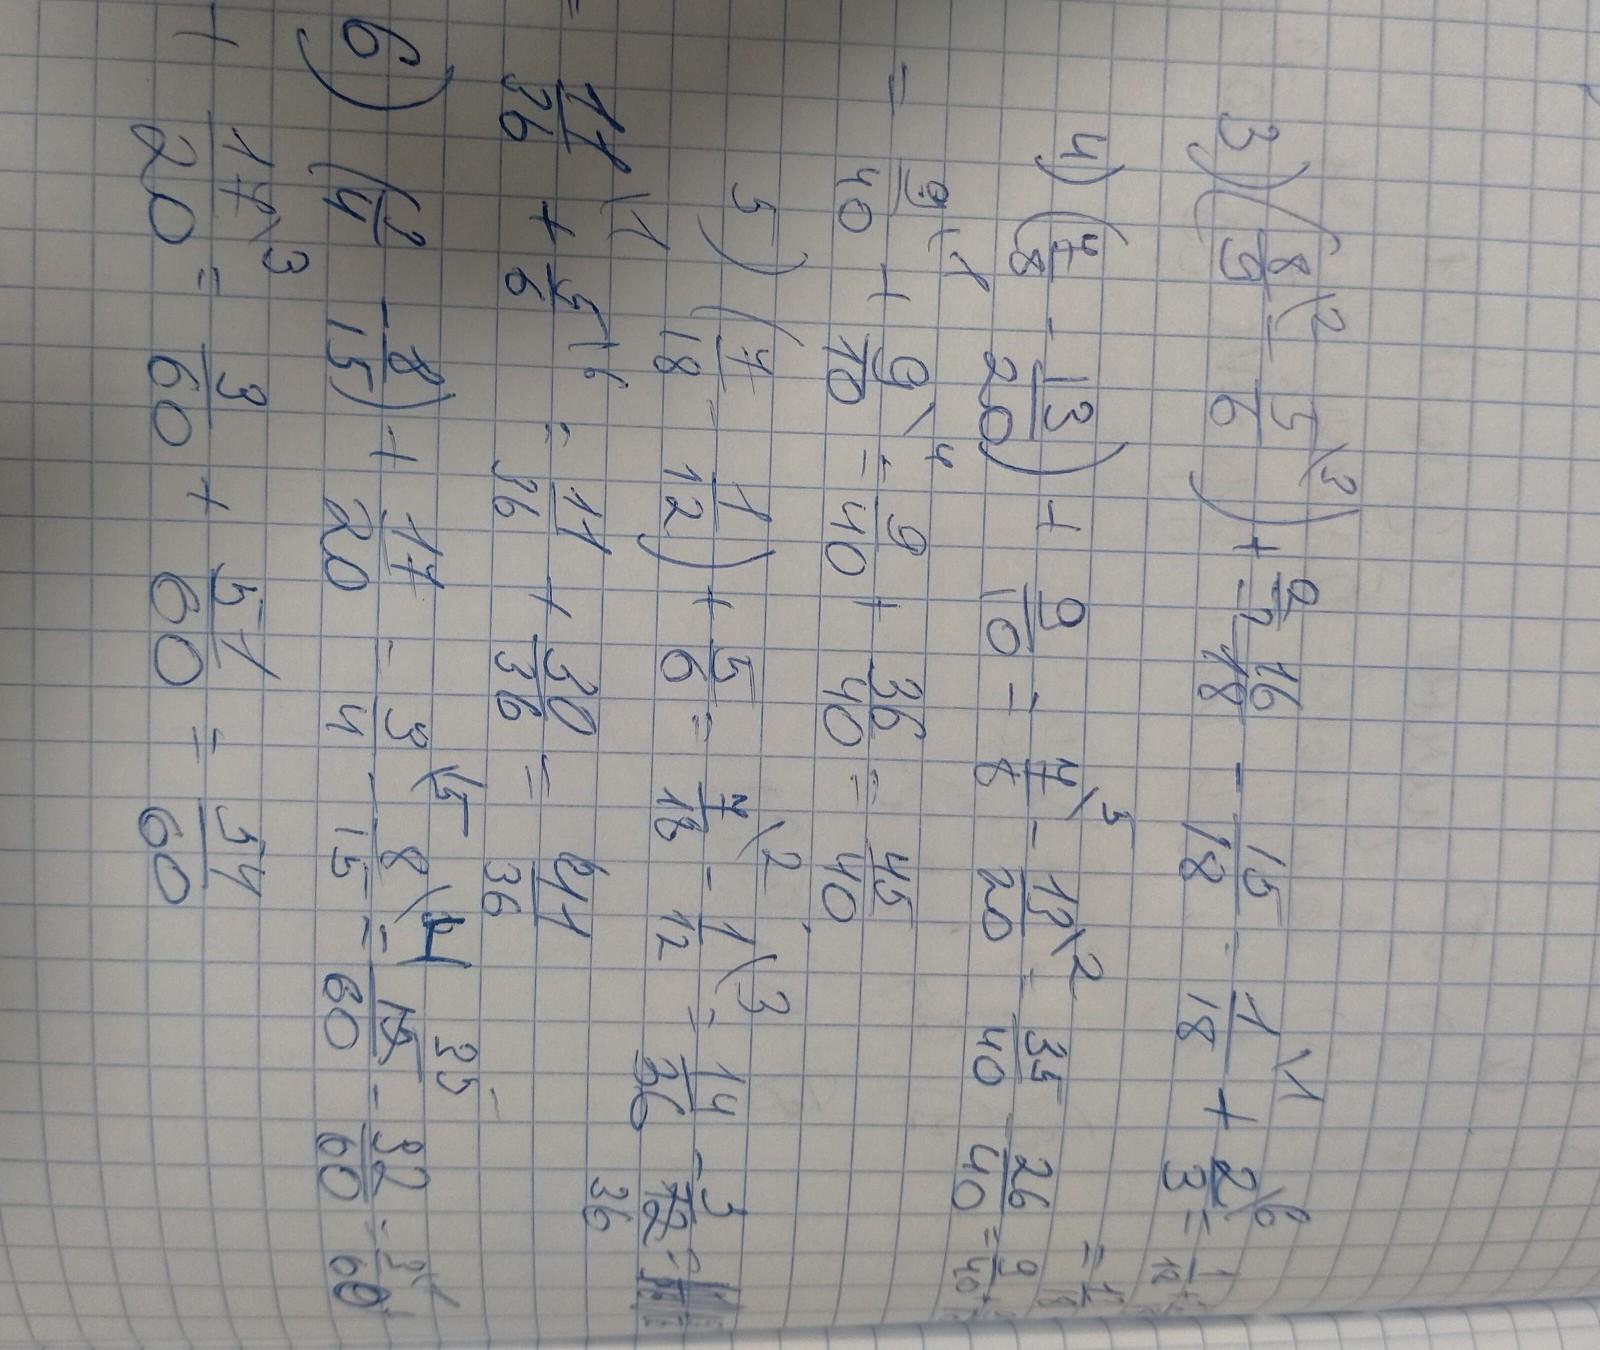 3) (8/9\2 - 5/6\3) + 2/3 16/18 - 15/18 - 1/18\1 + 2/3\6 = 1/18 +
= 1/18
4) (7/8 - 13/20) + 9/10 = 7/8\5 - 13/20\2 - 35/40 - 26/40 = 9/40 +
= 9/40\1 + 9/10\4 = 9/40 + 36/40 = 45/40
5) (7/18 - 1/12) + 5/6 = 7/18\2 - 1/12\3 = 14/36 - 3/36 =
= 11/36\1 + 5/6\6 = 11/36 + 30/36 = 41/36
6) (3/4 - 8/15) + 17/20 = 3/4\15 - 8/15\4 = 35/60 - 32/60 = 3/60
+ 17/20\3 = 3/60 + 51/60 = 54/60